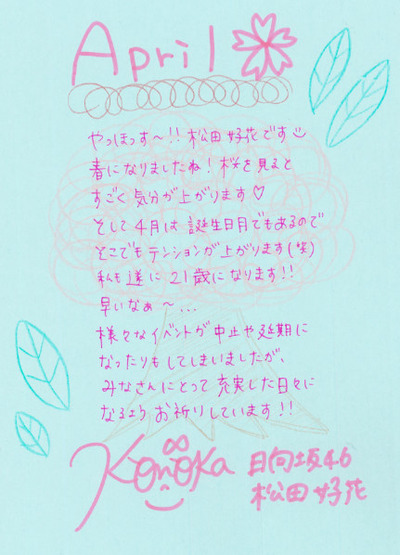 April
やっほっす〜!! 松田好花です
春になりましたね!桜を見ると
すごく気分が上がります♡
そして4月は誕生日月でもあるので
そこでもテンションが上がります(笑)
私も遂に21歳になります!!
早いなぁ〜...
様々なイベントが中止や延期に
なったりもしてしまいましたが、
みなさんにとって充実した日々に
なるようお祈りしています!!
Konoka
日向坂46
松田好花